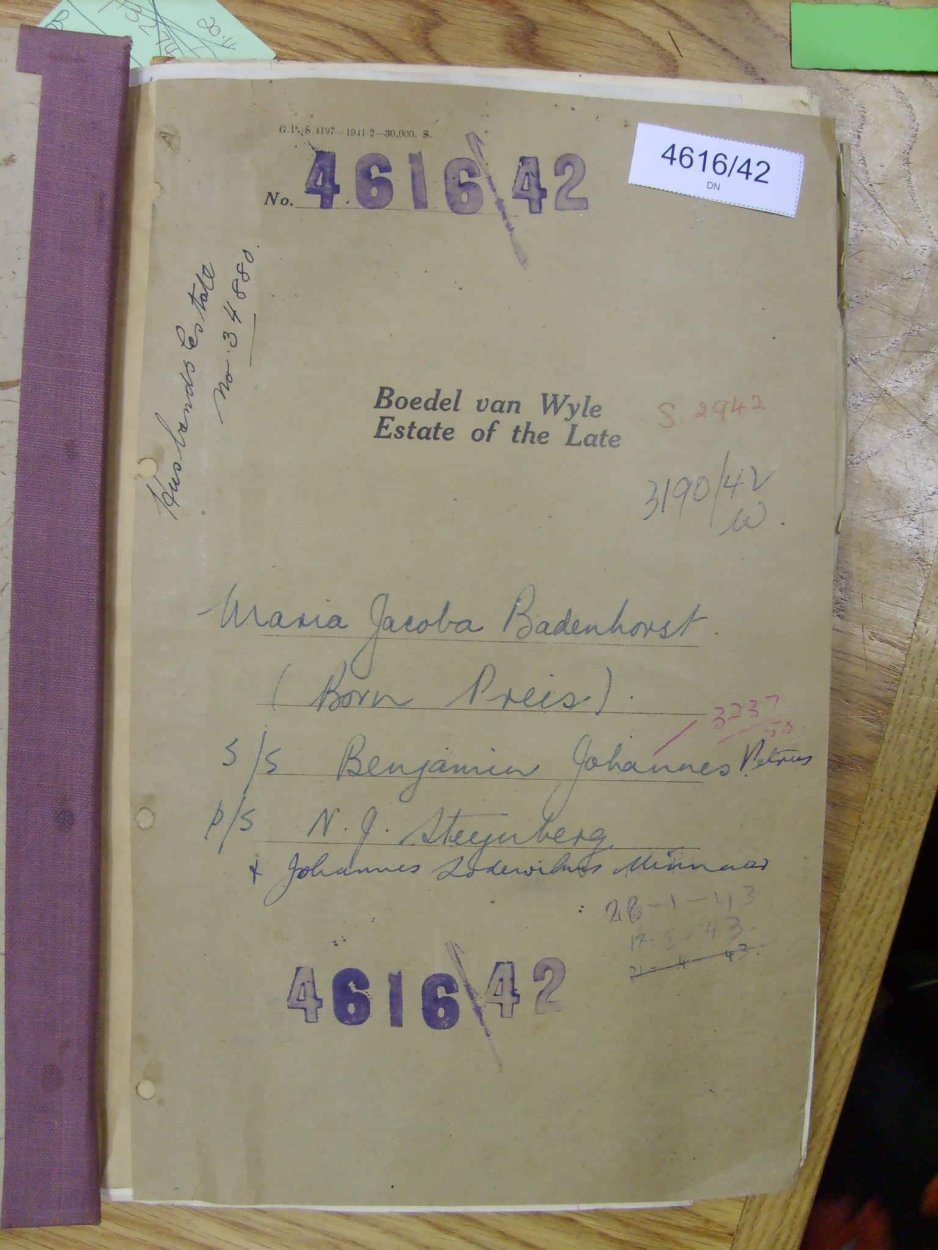 G.P.-S.4197—1941-2—30,000. S.
No. 4616/42
4616/42
DN
Husbands Estate
No. 34880.
Boedel van Wyle
Estate of the Late
S. 2942
3190/42
W.
Maria Jacoba Badenhorst.
(Born Preis).
3237
S/S Benjamin Johannes Petrus
P/S N. J. Steynberg
& Johannes Lodewikus Minnaar
28-1-43
12.3.43.
21-4-43.
4616/42